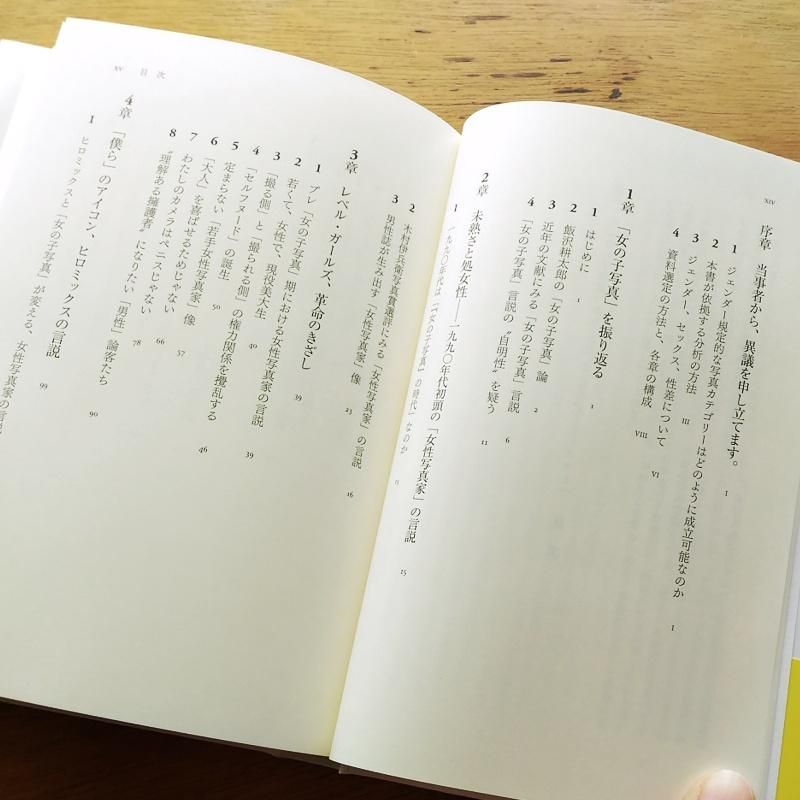 xiv
序章 当事者から、異議を申し立てます。 I
1 ジェンダー規定的な写真カテゴリーはどのように成立可能なのか I
2 本書が依拠する分析の方法 III
3 ジェンダー、セックス、性差について VI
4 資料選定の方法と、各章の構成 VIII
1章 「女の子写真」を振り返る 1
1 はじめに 1
2 飯沢耕太郎の「女の子写真」論 2
3 近年の文献にみる「女の子写真」言説 6
4 「女の子写真」言説の〝自明性〟を疑う 11
2章 未熟さと処女性——一九九〇年代初頭の「女性写真家」の言説 15
1 一九九〇年代は「『女の子写真』の時代」なのか 11
xv 目次
2 木村伊兵衛写真賞選評にみる「女性写真家」の言説 16
3 男性誌が生み出す「女性写真家」像 23
3章 レベル・ガールズ、革命のきざし 39
1 プレ「女の子写真」期における女性写真家の言説 39
2 若くて、女性で、現役美大生 40
3 「撮る側」と「撮られる側」の権力関係を攪乱する 46
4 「セルフヌード」の誕生 50
5 定まらない「若手女性写真家」像 57
6 「大人」を喜ばせるためじゃない
7 わたしのカメラはペニスじゃない 66
8 〝理解ある擁護者〟になりたい「男性」論客たち 78
4章 「僕ら」のアイコン、ヒロミックスの言説 90
1 ヒロミックスと「女の子写真」が変える、女性写真家の
99